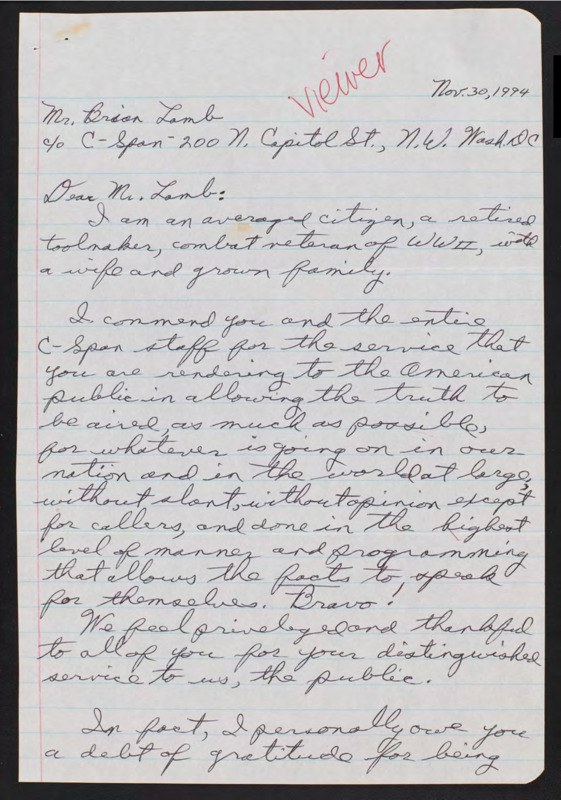 Viewer
Nov. 30, 1994
Mr. Brian Lamb
c/o C-Span - 200 N. Capitol St., N.W. Wash. DC
Dear Mr. Lamb:
I am an averaged citizen, a retired
toolmaker, combat veteran of WWII, with
a wife and grown family.
I commend you and the entire
C-Span staff for the service that
you are rendering to the American
public in allowing the truth to
be aired, as much as possible,
for whatever is going on in our
nation and in the world at large,
without slant, without opinion except
for callers, and done in the highest
level of manner and programming
that allows the facts to, speak
for themselves. Bravo!
We feel privileged and thankful
to all of you for your distinguished
service to us, the public.
In fact, I personally owe you
a debt of gratitude for being